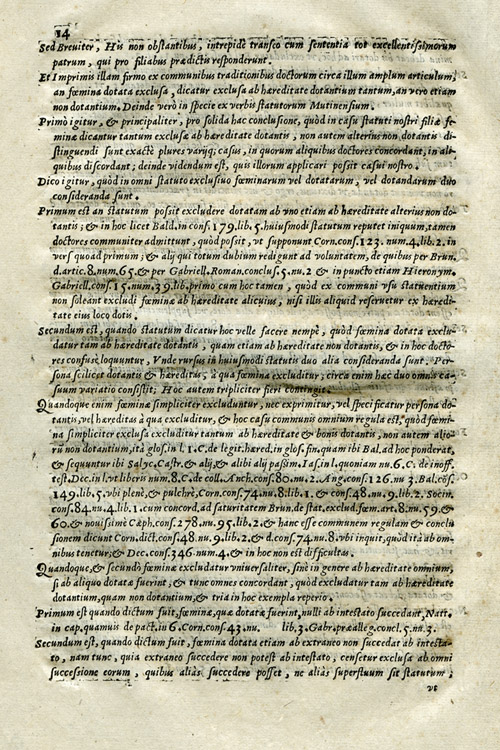 14
Sed Breuiter, His non obstantibus, intrepidè transeo cum sententia tot excellentissimorum
patrum, qui pro filiabus prædictis responderunt.
Et Imprimis illam firmo ex communibus traditionibus doctorum circa illum amplum articulum,
an fœmina dotata exclusa, dicatur exclusa ab hæreditate dotantium tantum, an vero etiam
non dotantium. Deinde verò in specie ex verbis statutorum Mutinensium.
Primò igitur, & principaliter, pro solida hac conclusione, quòd in casu statuti nostri filiæ fe-
minæ dicantur tantum exclusæ ab hæreditate dotantis, non autem alterius non dotantis di-
stinguendi sunt exactè plures varijq; casus, in quorum aliquibus doctores concordant, in ali-
quibus discordant; deinde videndum est, quis illorum applicari possit casui nostro.
Dico igitur, quòd in omni statuto exclusiuo fœminarum vel dotatarum, vel dotandarum duo
consideranda sunt.
Primum est an statutum possit excludere dotatam ab vno etiam ab hæreditate alterius non do-
tantis; & in hoc licet Bald. in cons. 179. lib. 5. huiusmodi statutum reputet iniquum, tamen
doctores communiter admittunt, quòd possit, vt supponunt Corn. cons. 123. num. 4. lib. 2. in
vers quoad primum; & alij qui totum dubium redigunt ad voluntatem, de quibus per Brun.
d. artic. 8. num. 65. & per Gabriell. Roman. conclus. 5. nu. 2 & in puncto etiam Hieronym.
Gabriell. cons. 15. num. 39. lib. primo cum hoc tamen, quòd ex communi vsu statuentium
non soleant excludi fœminæ ab hæreditate alicuius, nisi illis aliquid reseruetur ex hæredi-
tate eius loco dotis.
Secundum est, quando statutum dicatur hoc velle facere nempè, quòd fœmina dotata exclu-
datur tam ab hæreditate dotantis, quam etiam ab hæreditate non dotantis, & in hoc docto-
res confusè loquuntur, Vnde rursus in huiusmodi statutis duo alia consideranda sunt. Per-
sona scilicet dotantis & hæreditas, à qua fœmina excluditur; circa enim hæc duo omnis ca-
suum variatio consistit; Hoc autem tripliciter fieri contingit.
Quandoque enim fœminæ simpliciter excluduntur, nec exprimitur, vel specificatur persona do-
tantis, vel hæreditas à qua excluditur, & hoc casu communis omnium regula est, quòd fœmi-
na simpliciter exclusa excluditur tantum ab hæreditate & bonis dotantis, non autem alio-
rũ non dotantium, ità glos. in l. 1. C. de legit. hæred. in glos. fin. quam ibi Bal. ad hoc ponderat,
& sequuntur ibi Salyc. Castr. & alij, & alibi alij passim. Ias. in l. quoniam nu. 6. C. de inoff.
test. Dec. in l. vt liberis num. 8. C. de coll. Anch. cons. 80. nu. 2. Ang. cons. 126. nu 3. Bal. cōs.
149. lib. 5. vbi plenè, & pulchrè, Corn. cons. 74. nu. 8. lib. 1. & cons. 48. nu. 9. lib. 2. Socin.
cons. 84. nu. 4. lib. 1. cum concord, ad saturitatem Brun. de stat. exclud. fœm. art. 8. nu. 59. &
60. & nouissimè Cæph. cons. 278. nu. 95. lib. 2. & hanc esse communem regulam & conclu
sionem dicunt Corn. dict. cons. 48. nu. 9. lib. 2. & d. cons. 74. nu. 8. vbi inquit, quòd ità ab om-
nibus tenetur, & Dec. cons. 346. num. 4. & in hoc non est difficultas.
Quandoque, & secundò fœminæ excludatur vniuersaliter, sinè in genere ab hæreditate omnium,
si ab aliquo dotata fuerint, & tunc omnes concordant, quòd excludatur tam ab hæreditate
dotantium, quam non dotantium, & tria in hoc exempla reperio.
Primum est quando dictum fuit, fœminæ, quæ dotatæ fuerint, nulli ab intestato succedant, Natt.
in cap. quamuis de pact. in 6. Corn. cons. 43. nu. lib. 3. Gabr. præalleg. concl. 5. nu. 3.
Secundum est, quando dictum fuit, fœmina dotata etiam ab extraneo non succedat ab intesta-
to, nam tunc, quia extraneo succedere non potest ab intestato, censetur exclusa ab omni
successione eorum, quibus aliàs succedere posset, ne aliàs superfluum sit statutum;
vt